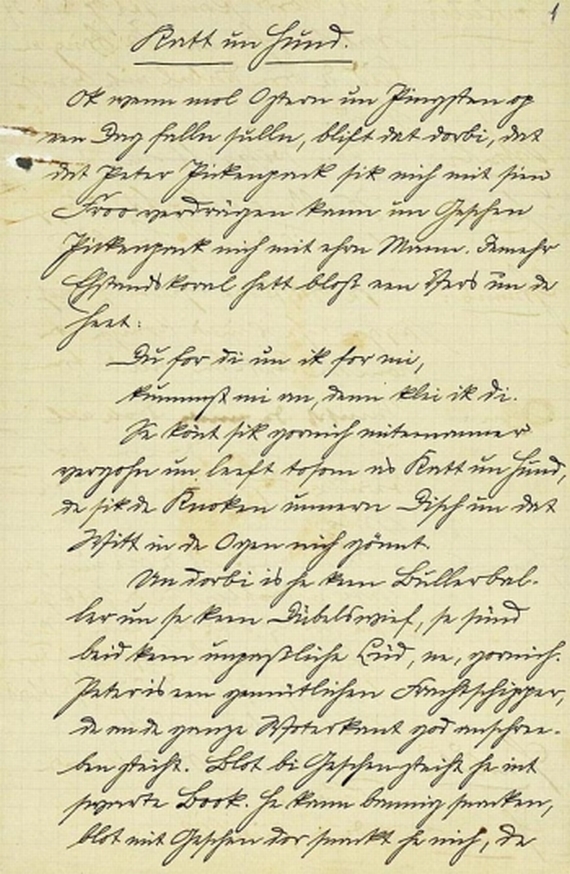 1
Katt un Hund.
Ok wenn mol Ostern un Pingsten op
een Dag falln sulln, blift dat dorbi, dat
dat Peter Pickenpack sik nich mit sien
Froo verdrägen kann un Geschen
Pickenpack nich mit ehrn Mann. Jemehr
Ehstandskoral hett blost een Vers un de
heet:
Du for di un ik for mi,
kummst mi an, denn klei ik di.
Se könt sik gornich miteenanner
vergohn un leeft tosom as Katt un Hund,
de sik de Knoken unnern Disch un dat
Witt in de Ogen nich gönnt.
Un dorbi is he keen Bullerbal-
ler un se keen Dübelswief, se sünd
beid keen unpaßliche Lüd, ne, gornich.
Peter is een gemütlichen Frachtschipper,
de an de ganze Woterkant god anschree-
ben steiht. Blot bi Geschen steiht he int
swarte Book. He kann bannig snacken,
blot mit Geschen dor snackt he nich, de